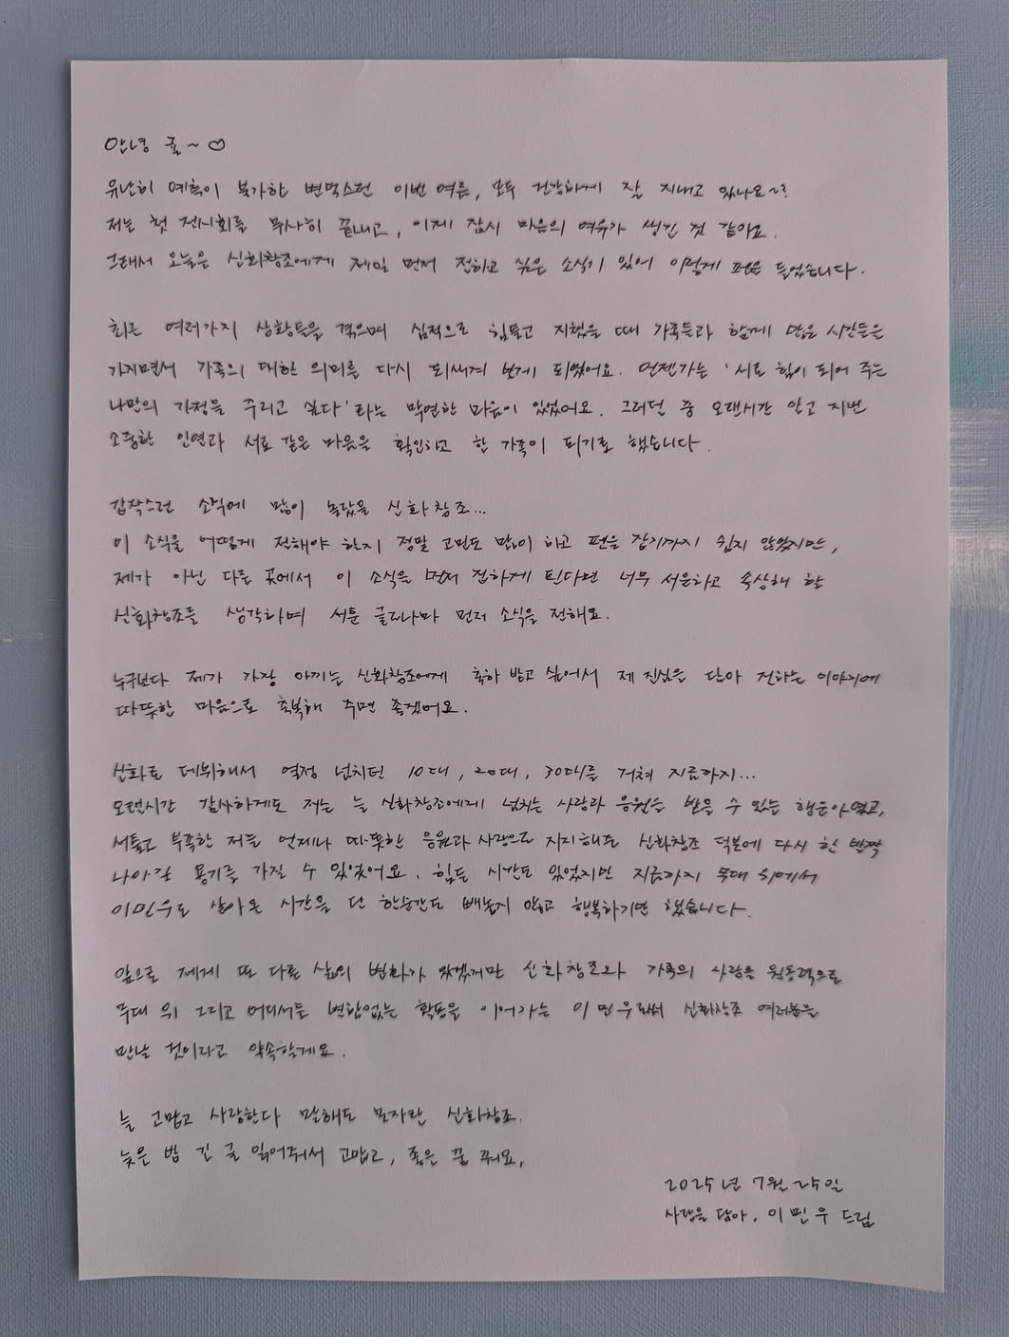 안녕 귤~♡
유난히 예측이 불가한 변덕스런 이번 여름, 모두 건강하게 잘 지내고 있나요~?
저는 첫 전시회를 무사히 끝내고, 이제 잠시 마음의 여유가 생긴 것 같아요.
그래서 오늘은 신화창조에게 제일 먼저 전하고 싶은 소식이 있어 이렇게 펜을 들었습니다.
최근 여러가지 상황들을 겪으며 심적으로 힘들고 지쳤을 때 가족들과 함께 많은 시간들은
가지면서 가족의 대한 의미를 다시 되새겨 보게 되었어요. 언젠가는 '서로 힘이 되어 주는
나만의 가정을 꾸리고 싶다'라는 막연한 마음이 있었어요. 그러던 중 오랜시간 알고 지낸
소중한 인연과 서로 같은 마음을 확인하고 한 가족이 되기로 했습니다.
갑작스런 소식에 많이 놀랐을 신화창조...
이 소식을 어떻게 전해야 할지 정말 고민도 많이 하고 펜을 잡기까지 쉽지 않았지만,
제가 아닌 다른 곳에서 이 소식을 먼저 접하게 된다면 너무 서운하고 속상해 할
신화창조를 생각하며 서툰 글로나마 먼저 소식을 전해요.
누구보다 제가 가장 아끼는 신화창조에게 축하 받고 싶어서 제 진심을 담아 전하는 이야기에
따뜻한 마음으로 축복해 주면 좋겠어요.
신화로 데뷔해서 열정 넘치던 10대, 20대, 30대를 거쳐 지금까지...
오랜시간 감사하게도 저는 늘 신화창조에게 넘치는 사랑과 응원을 받을 수 있는 행운아였고,
서툴고 부족한 저를 언제나 따뜻한 응원과 사랑으로 지지해준 신화창조 덕분에 다시 한 번 더
나아갈 용기를 가질 수 있었어요. 힘든 시간도 있었지만 지금까지 무대 위에서
이민우로 살아온 시간을 단 한순간도 빼놓지 않고 행복하기만 했습니다.
앞으로 제게 또 다른 삶의 변화가 있겠지만 신화창조와 가족의 사랑을 원동력으로
무대 위 그리고 어디서든 변함없는 활동을 이어가는 이민우로써 신화창조 여러분을
만날 것이라고 약속할게요.
늘 고맙고 사랑한다 말해도 모자란 신화창조.
늦은 밤 긴 글 읽어줘서 고맙고, 좋은 꿈 꿔요.
2025년 7월 25일
사랑을 담아, 이민우 드림